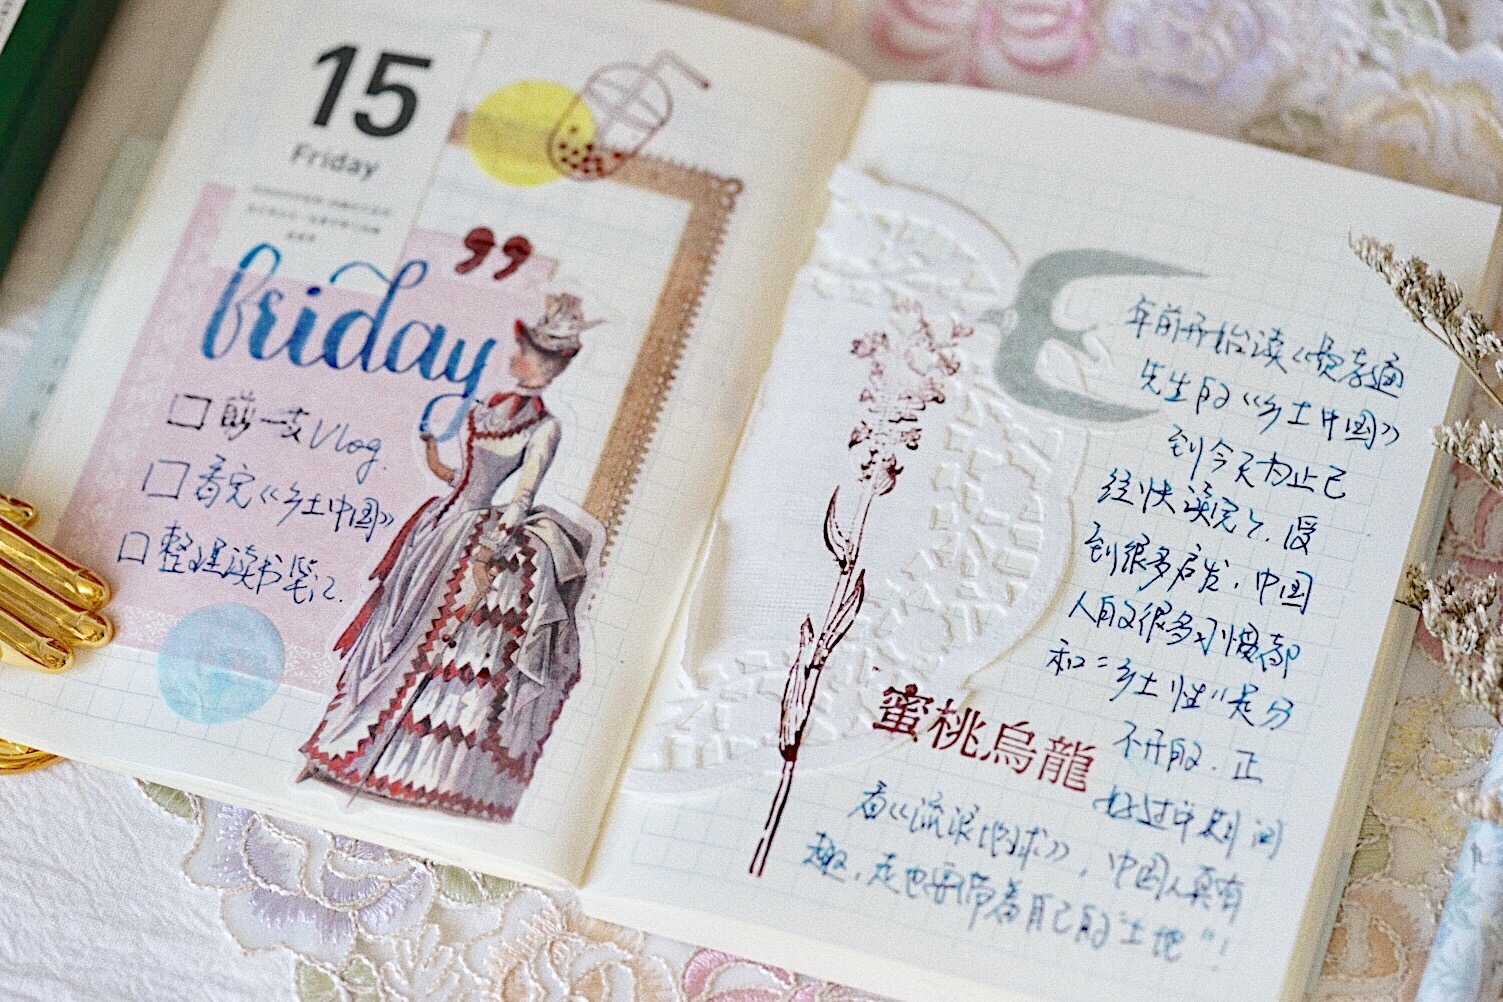 15
Friday
friday
”
□ 剪一支Vlog.
□ 看完《乡土中国》
□ 整理读书笔记.
年前开始读《费孝通
先生的《乡土中国》
到今天为止已
经快读完了.受
到很多启发，中国
人的很多习惯都
和“乡土性”是分
不开的．正
好过年期间
看《流浪地球》，中国人真有
趣，走也要带着自己的“土地”！
蜜桃烏龍